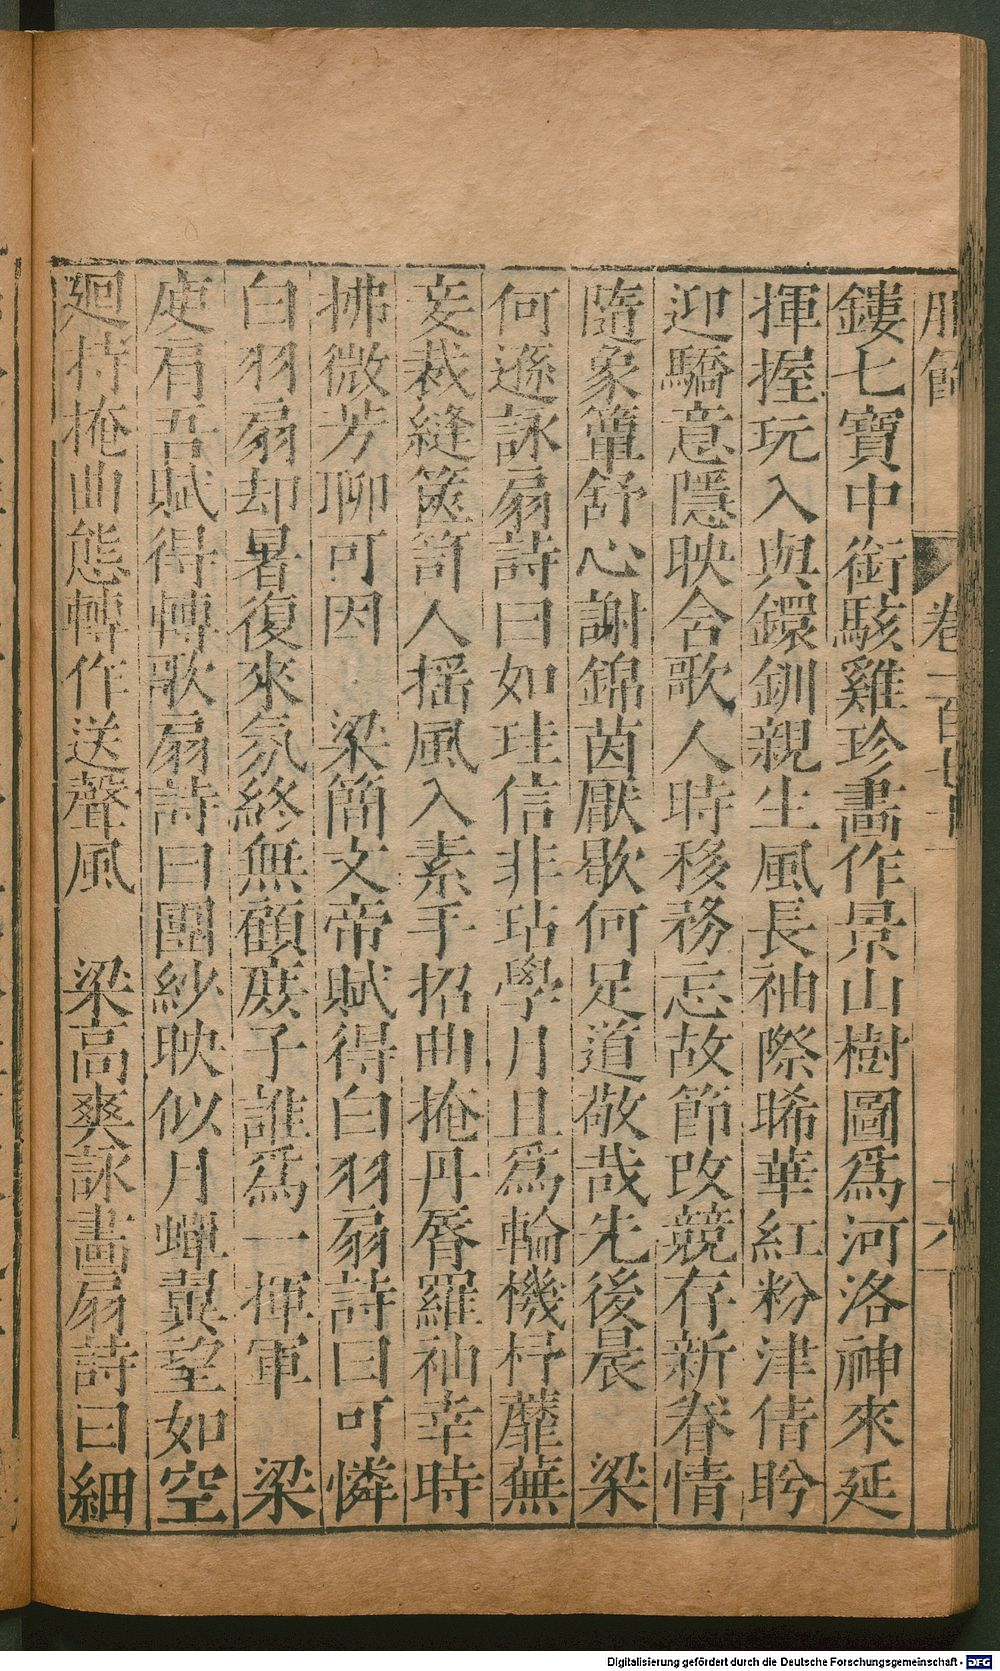 卷二百七十一
十六
鏤七寶中銜駭雞珍畵作景山樹圖爲河洛神來延
揮握玩入與鐶釧親生風長袖際晞華紅粉津倩盻
迎驕意隱映含歌人時移務忘故節改競存新春情
隨象簟舒心謝錦茵厭歇何足道敬哉先後晨　梁
何遜詠扇詩曰如珪信非玷學月且爲輪機杼蘼蕪
妾裁縫篋笥人摇風入素手招曲掩丹脣羅袖幸時
拂微芳聊可因　梁簡文帝賦得白羽扇詩曰可憐
白羽扇却暑復來氛終無顧庻子誰爲一揮軍　梁
庾肩吾賦得轉歌扇詩曰團紗映似月蟬翼望如空
廻持掩曲態轉作送聲風　梁高爽詠畵扇詩曰細
Digitalisierung gefördert durch die Deutsche Forschungsgemeinschaft - DFG